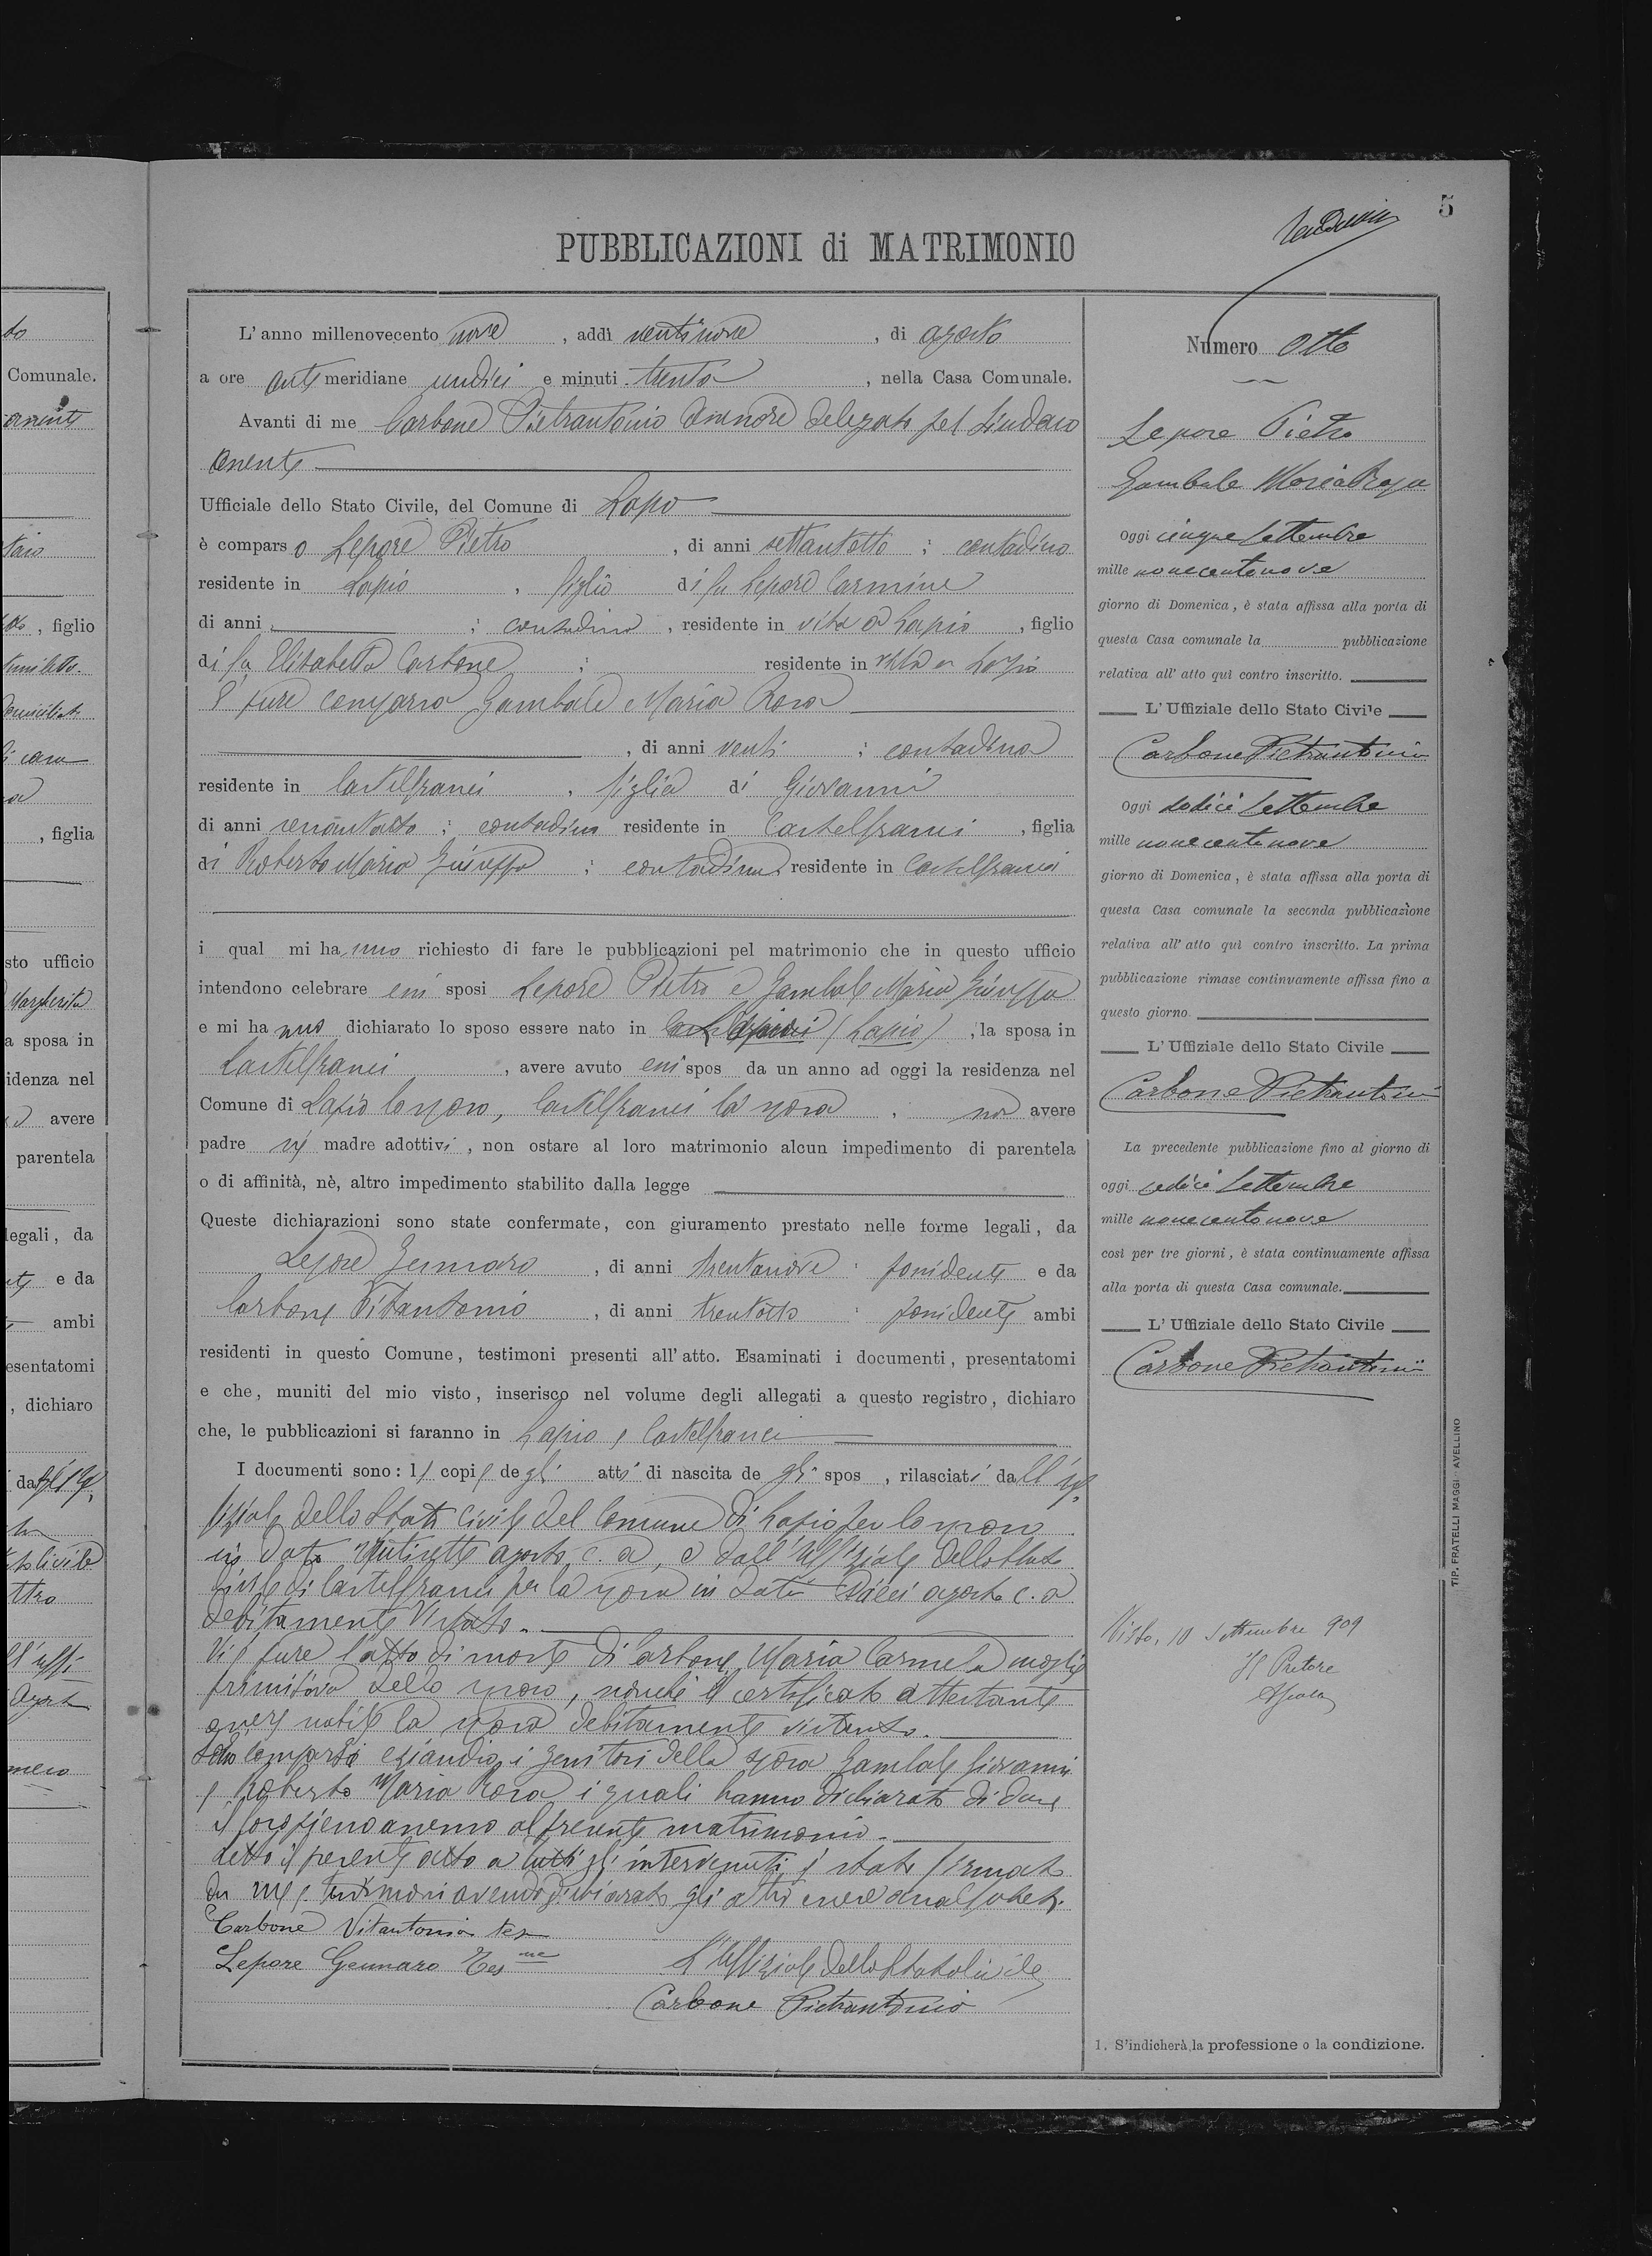 5
PUBBLICAZIONI di MATRIMONIO
L'anno millenovecento nove, addì ventinove, di agosto
a ore antimeridiane undici e minuti trenta, nella Casa Comunale.
Avanti di me Carbone Pietrantonio Assessore delegato pel Sindaco
assente
Ufficiale dello Stato Civile, del Comune di Lapio
è comparso Lepore Pietro, di anni settantotto; contadino
residente in Lapio, figlio di fu Lepore Carmine
di anni ; contadino, residente in vita a Lapio, figlio
di fu Elisabetta Carbone ; residente in vita a Lapio
E' pure comparsa Gambale Maria Rosa
, di anni venti ; contadina
residente in Castelfranci, figlia di Giovanni
di anni ; contadino residente in Castelfranci, figlia
di Roberto Maria Giuseppa ; contadina residente in Castelfranci
i qual mi hanno richiesto di fare le pubblicazioni pel matrimonio che in questo ufficio
intendono celebrare essi sposi Lepore Pietro e Gambale Maria Giuseppa
e mi hanno dichiarato lo sposo essere nato in (Lapio), la sposa in
Castelfranci, avere avuto essi spos da un anno ad oggi la residenza nel
Comune di Lapio lo sposo, Castelfranci la sposa, non avere
padre nè madre adottivi, non ostare al loro matrimonio alcun impedimento di parentela
o di affinità, nè, altro impedimento stabilito dalla legge
Queste dichiarazioni sono state confermate, con giuramento prestato nelle forme legali, da
Lepore Gennaro, di anni trentanove; possidente e da
Carbone Vitantonio, di anni trentotto; possidente ambi
residenti in questo Comune, testimoni presenti all'atto. Esaminati i documenti, presentatomi
e che, muniti del mio visto, inserisco nel volume degli allegati a questo registro, dichiaro
che, le pubblicazioni si faranno in Lapio e Castelfranci
I documenti sono: le copie degli atti di nascita de gli spos, rilasciati dall'uf
fiziale dello Stato Civile del Comune di Lapio per lo sposo
in data ventisette agosto c. a, e dall'Uffiziale dello Stato
Civile di Castelfranci per la sposa in data dieci agosto c. a
debitamente vistato.
Vi è pure l'atto di morte di Carbone Maria Carmela moglie
primitiva dello sposo, nonchè il certificato attestante
essere nubile la sposa debitamente vistato.
Sono comparsi eziandio i genitori della sposa Gambale Giovanni
e Roberto Maria Rosa i quali hanno dichiarato di dare
il loro pieno assenso al presente matrimonio.
Letto il presente atto a tutti gli intervenuti è stato firmato
da me e testimoni avendo dichiarato gli altri essere analfabeti.
Carbone Vitantonio tes
Lepore Gennaro Tes ne
L'Uffiziale dello Stato Civile
Carbone Pietrantonio
Numero Otto
Lepore Pietro
Gambale Maria Rosa
Oggi cinque Settembre
mille novecentonove
giorno di Domenica, è stata affissa alla porta di
questa Casa comunale la pubblicazione
relativa all'atto quì contro inscritto.
L'Uffiziale dello Stato Civile
Carbone Pietrantonio
Oggi dodici Settembre
mille novecentonove
giorno di Domenica, è stata affissa alla porta di
questa Casa comunale la seconda pubblicazione
relativa all'atto quì contro inscritto. La prima
pubblicazione rimase continvamente affissa fino a
questo giorno.
L'Uffiziale dello Stato Civile
Carbone Pietrantonio
La precedente pubblicazione fino al giorno di
oggi sedici Settembre
mille novecentonove
così per tre giorni, è stata continuamente affissa
alla porta di questa Casa comunale.
L'Uffiziale dello Stato Civile
Carbone Pietrantonio
Visto, 10 Settembre 909
Il Pretore
1. S'indicherà la professione o la condizione.
TIP. FRATELLI MAGGI - AVELLINO